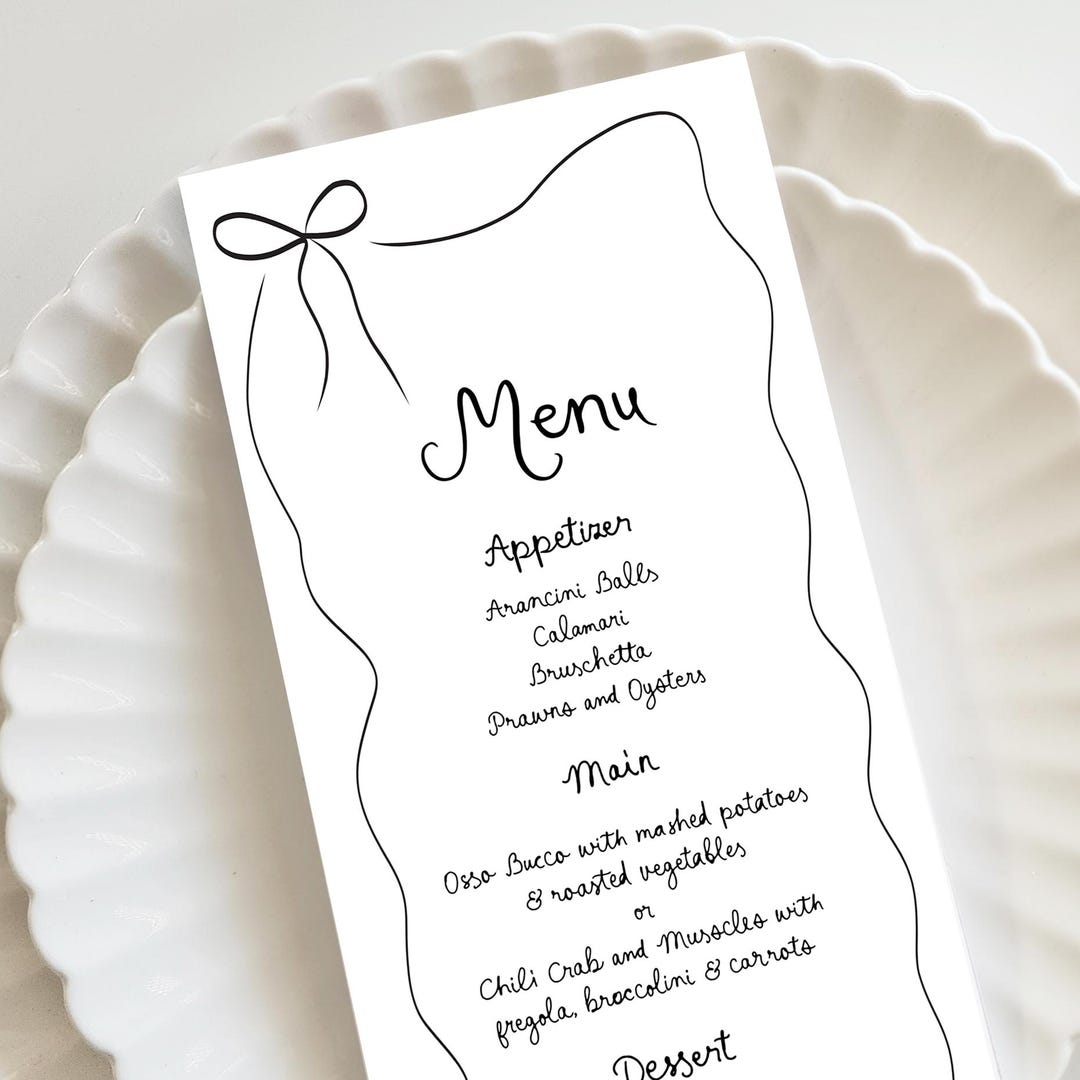 Menu
Appetizer
Arancini Balls
Calamari
Bruschetta
Prawns and Oysters
Main
Osso Bucco with mashed potatoes
& roasted vegetables
or
Chili Crab and Musscles with
fregola, broccolini & carrots
Dessert